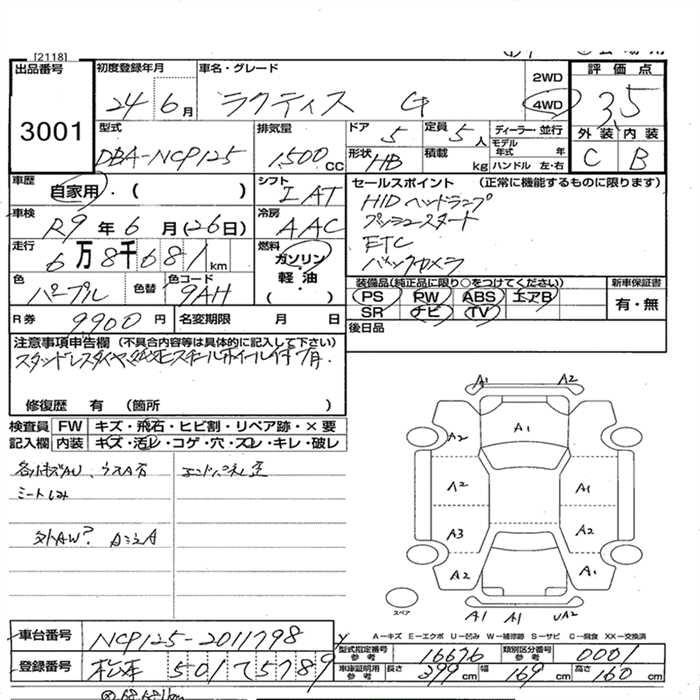 [2118]
出品番号 初度登録年月 車名・グレード 2WD 評価点
3001 24年6月 ラクティス G 4WD 3.5
外装 内装
C B
型式 排気量 ドア 定員 ディーラー 並行
DBA-NCP125 1,500CC 5 5人 モデル年式 年
形状 積載 ハンドル 左・右
HB kg
車歴 シフト セールスポイント (正常に機能するものに限ります)
自家用・( ) IAT HIDヘッドランプ
車検 冷房 プッシュスタート
R9年6月(26日) AAC ETC
走行 燃料 バックカメラ
6万8千681km ガソリン・軽油・( )
色 色替 色コード 装備品(純正品に限り○をつけてください) 新車保証書
パープル 9AH PS PW ABS エアB 有・無
SR ナビ TV
R券 9900円 名変期限 月 日 後日品
注意事項申告欄 (不具合内容等は具体的に記入して下さい)
スタッドレスタイヤ純正スチールホイール付 有.
修復歴 有 (箇所 )
検査員 FW キズ・飛石・ヒビ割・リペア跡・×要
記入欄 内装 キズ・汚レ・コゲ・穴・スレ・キレ・破レ
シートしみ
A1 A2
A1
A2
A2 A1
A3 A2
A2 A2
A1 A1 UA2
スペア
A-キズ E-エクボ U-凹み W-補修跡 S-サビ C-腐食 XX-交換済
車台番号 NCP125-2011798
型式指定番号参考 16676 類別区分番号参考 0001
登録番号 501 5789
車庫証明用参考 長さ 399cm 幅 169cm 高さ 160cm